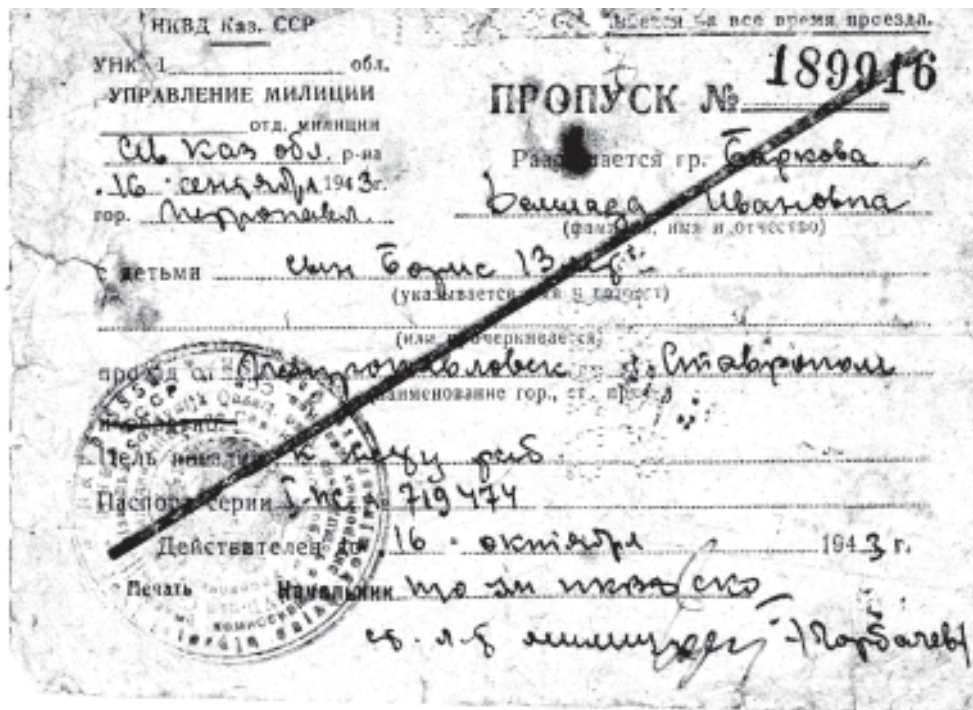 НКВД Каз. ССР
УНК обл.
УПРАВЛЕНИЕ МИЛИЦИИ
отд. милиции
Сев Каз обл. р-на
16 сентября 1943г.
гор. Петропавл.
на все время проезда.
ПРОПУСК № 189916
Разрешается гр. Баркова
Ивановна
(фамилия, имя и отчество)
с детьми сын Борис 13 лет
(указывается имя и возраст)
(или прочеркивается)
проезд от Петропавловск до Ставрополь
(наименование гор., ст.
и обратно.
Цель поездки к месту раб
Паспорт серии 719474
Действителен до 16 октября 1943 г.
Печать Начальник НКВД СКО
милиции /Горбачев/